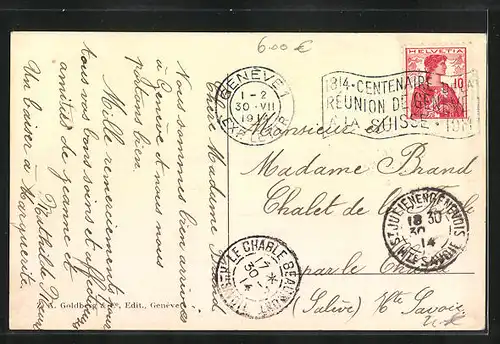 6.00 €
HELVETIA
10
GENÈVE 1
1-2
30·VII
1914
EXP. LETTR.
1814·CENTENAIRE
RÉUNION DE
A LA SUISSE·
Chère Madame Brand
Nous sommes bien arrivées
à Genève et nous nous
portons bien.
Mille remerciements pour
tous vos bons soins et affectueuses
amitiés de Jeanne et
Mathilde
Un baiser à Marguerite.
Monsieur et
Madame Brand
Chalet de
par le Châble
(Salève) Hte Savoie
ST JULIEN EN GENEVOIS
18 30
30
14
HTE SAVOIE
LE CHABLE BEAUMONT
17 *
30-7
14
HTE SAVOIE
A. Goldberg & Co, Edit., Genève